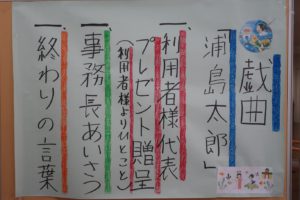 戯曲
「浦島太郎」
一.利用者様代表
プレゼント贈呈
(利用者様よりひとこと)
一.事務長あいさつ
一.終わりの言葉